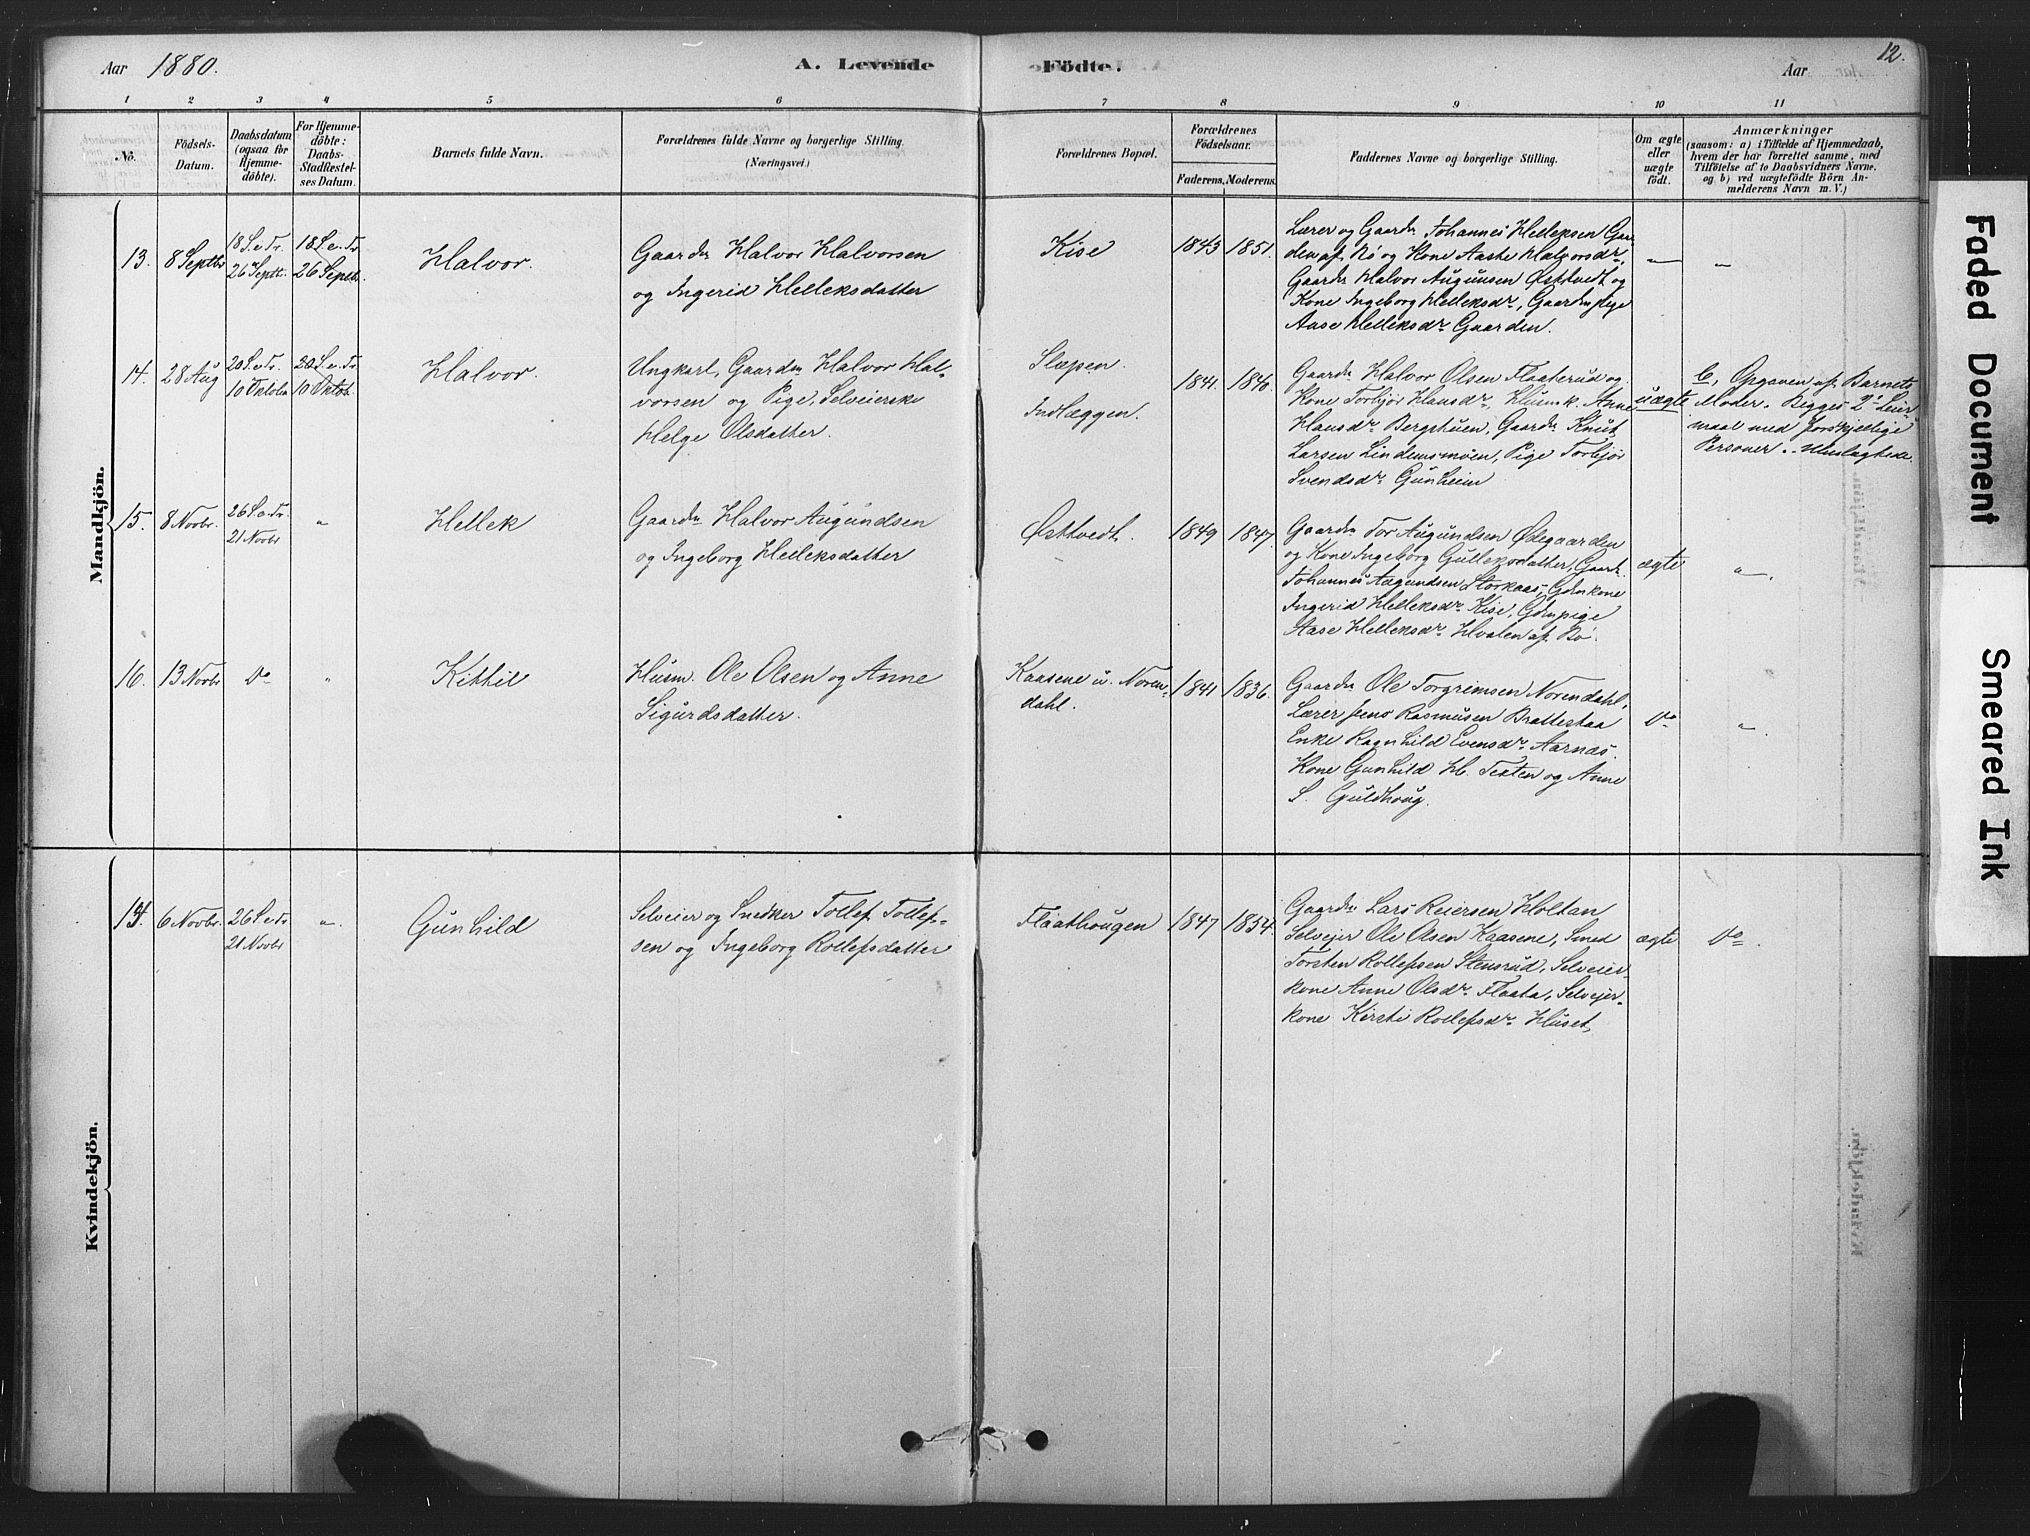 Aar 1880.
A. Levende Födte.
Aar
12.
1 2 3 4 5 6 7 8 9 10 11
No.
Födsels-
Datum.
Daabsdatum
(ogsaa for
Hjemme-
döbte).
For Hjemme-
döbte:
Daabs-
Stadfæstel-
ses Datum.
Barnets fulde Navn.
Forældrenes fulde Navne og borgerlige Stilling.
(Næringsvei.)
Forældrenes Bopæl.
Forældrenes
Födselsaar.
Faderens. Moderens.
Faddernes Navne og borgerlige Stilling.
Om ægte
eller
uægte
födt.
Anmærkninger
(saasom: a) i Tilfælde af Hjemmedaab,
hvem der har forrettet samme, med
Tilföielse af to Daabsvidners Navne.
og b) ved uægtefödte Börn An-
melderens Navn m. V.)
Mandkjön.
13. 8 Septbr
18 S. e. Tr.
26 Septbr.
18 S. e. Tr.
26 Septbr.
Halvor.
Gaardm Halvor Halvorsen
og Ingerid Helleksdatter
Kise
1843 1851.
Lærer og Gaardm Johannes Helleksen Gaar
den af Bø og Kone Aaste Halvorsdr,
Gaardm Halvor Augundsen Østtvedt og
Kone Ingeborg Helleksdr, Gaardmpige
Aase Helleksdr Gaarden.
" "
14. 28 Aug
20 S. e. Tr.
10 Oktober
20 S. e. Tr
10 Oktob.
Halvor.
Ungkarl, Gaardm Halvor Hal-
vorsen og Pige, Selveierske
Helge Olsdatter.
Slæpen.
Indlæggen.
1841. 1846.
Gaardm Halvor Olsen Flaaterud og
Kone Torbjør Hansdr, Husmk. Anne
Hansdr Bergstuen, Gaardm Knut
Larsen Lindemsmoen, Pige Torbjør
Svendsdr Gunheim
uægte
b, Opgaven af Barnets
Moder. Begges 2' Leier
maal med forskjellige
Personer. Ubeslægtede.
15. 8 Novbr.
26 S. e. Tr.
21 Novbr
"
Hellek
Gaardm Halvor Augundsen
og Ingeborg Helleksdatter
Østtvedt.
1849 1847.
Gaardm Tor Augundsen Ødegaarden
og Kone Ingeborg Gulleksdatter, Gaardm
Johannes Augundsen Storkaas, Gdmkone
Ingerid Helleksdr Kise, Gdmpige
Aase Helleksdr Hvalen af Bø.
ægte
"
16. 13 Novbr
Do
"
Kittil
Husm. Ole Olsen og Anne
Sigurdsdatter.
Kaasene u. Noren-
dahl.
1841 1836.
Gaardm Ole Torgrimsen Norendahl,
Lærer Jens Rasmusen Brattestaa
Enke Ragnhild Evensdr Aarnæs
Kone Gunhild H. Texten og Anne
S. Guldhoug.
Do
"
Kvindekjön.
14. 6 Novbr.
26 S. e. Tr
21 Novbr
"
Gunhild
Selveier og Snedker Tollef Tollef-
sen og Ingeborg Rollefsdatter
Flaathougen
1847 1854.
Gaardm Lars Reiersen Holtan
Selvejer Ole Olsen Kaasene, Smed
Torsten Rollefsen Stensrud, Selveier
kone Anne Olsdr Flaata, Selvejer-
kone Kirsti Rollefsdr Huset,
ægte
Do
Faded Document
Smeared Ink